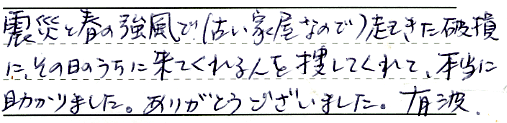 震災と春の強風で(古い家屋なので)起きた破損
に、その日のうちに来てくれる人を捜してくれて、本当に
助かりました。ありがとうございました。有波